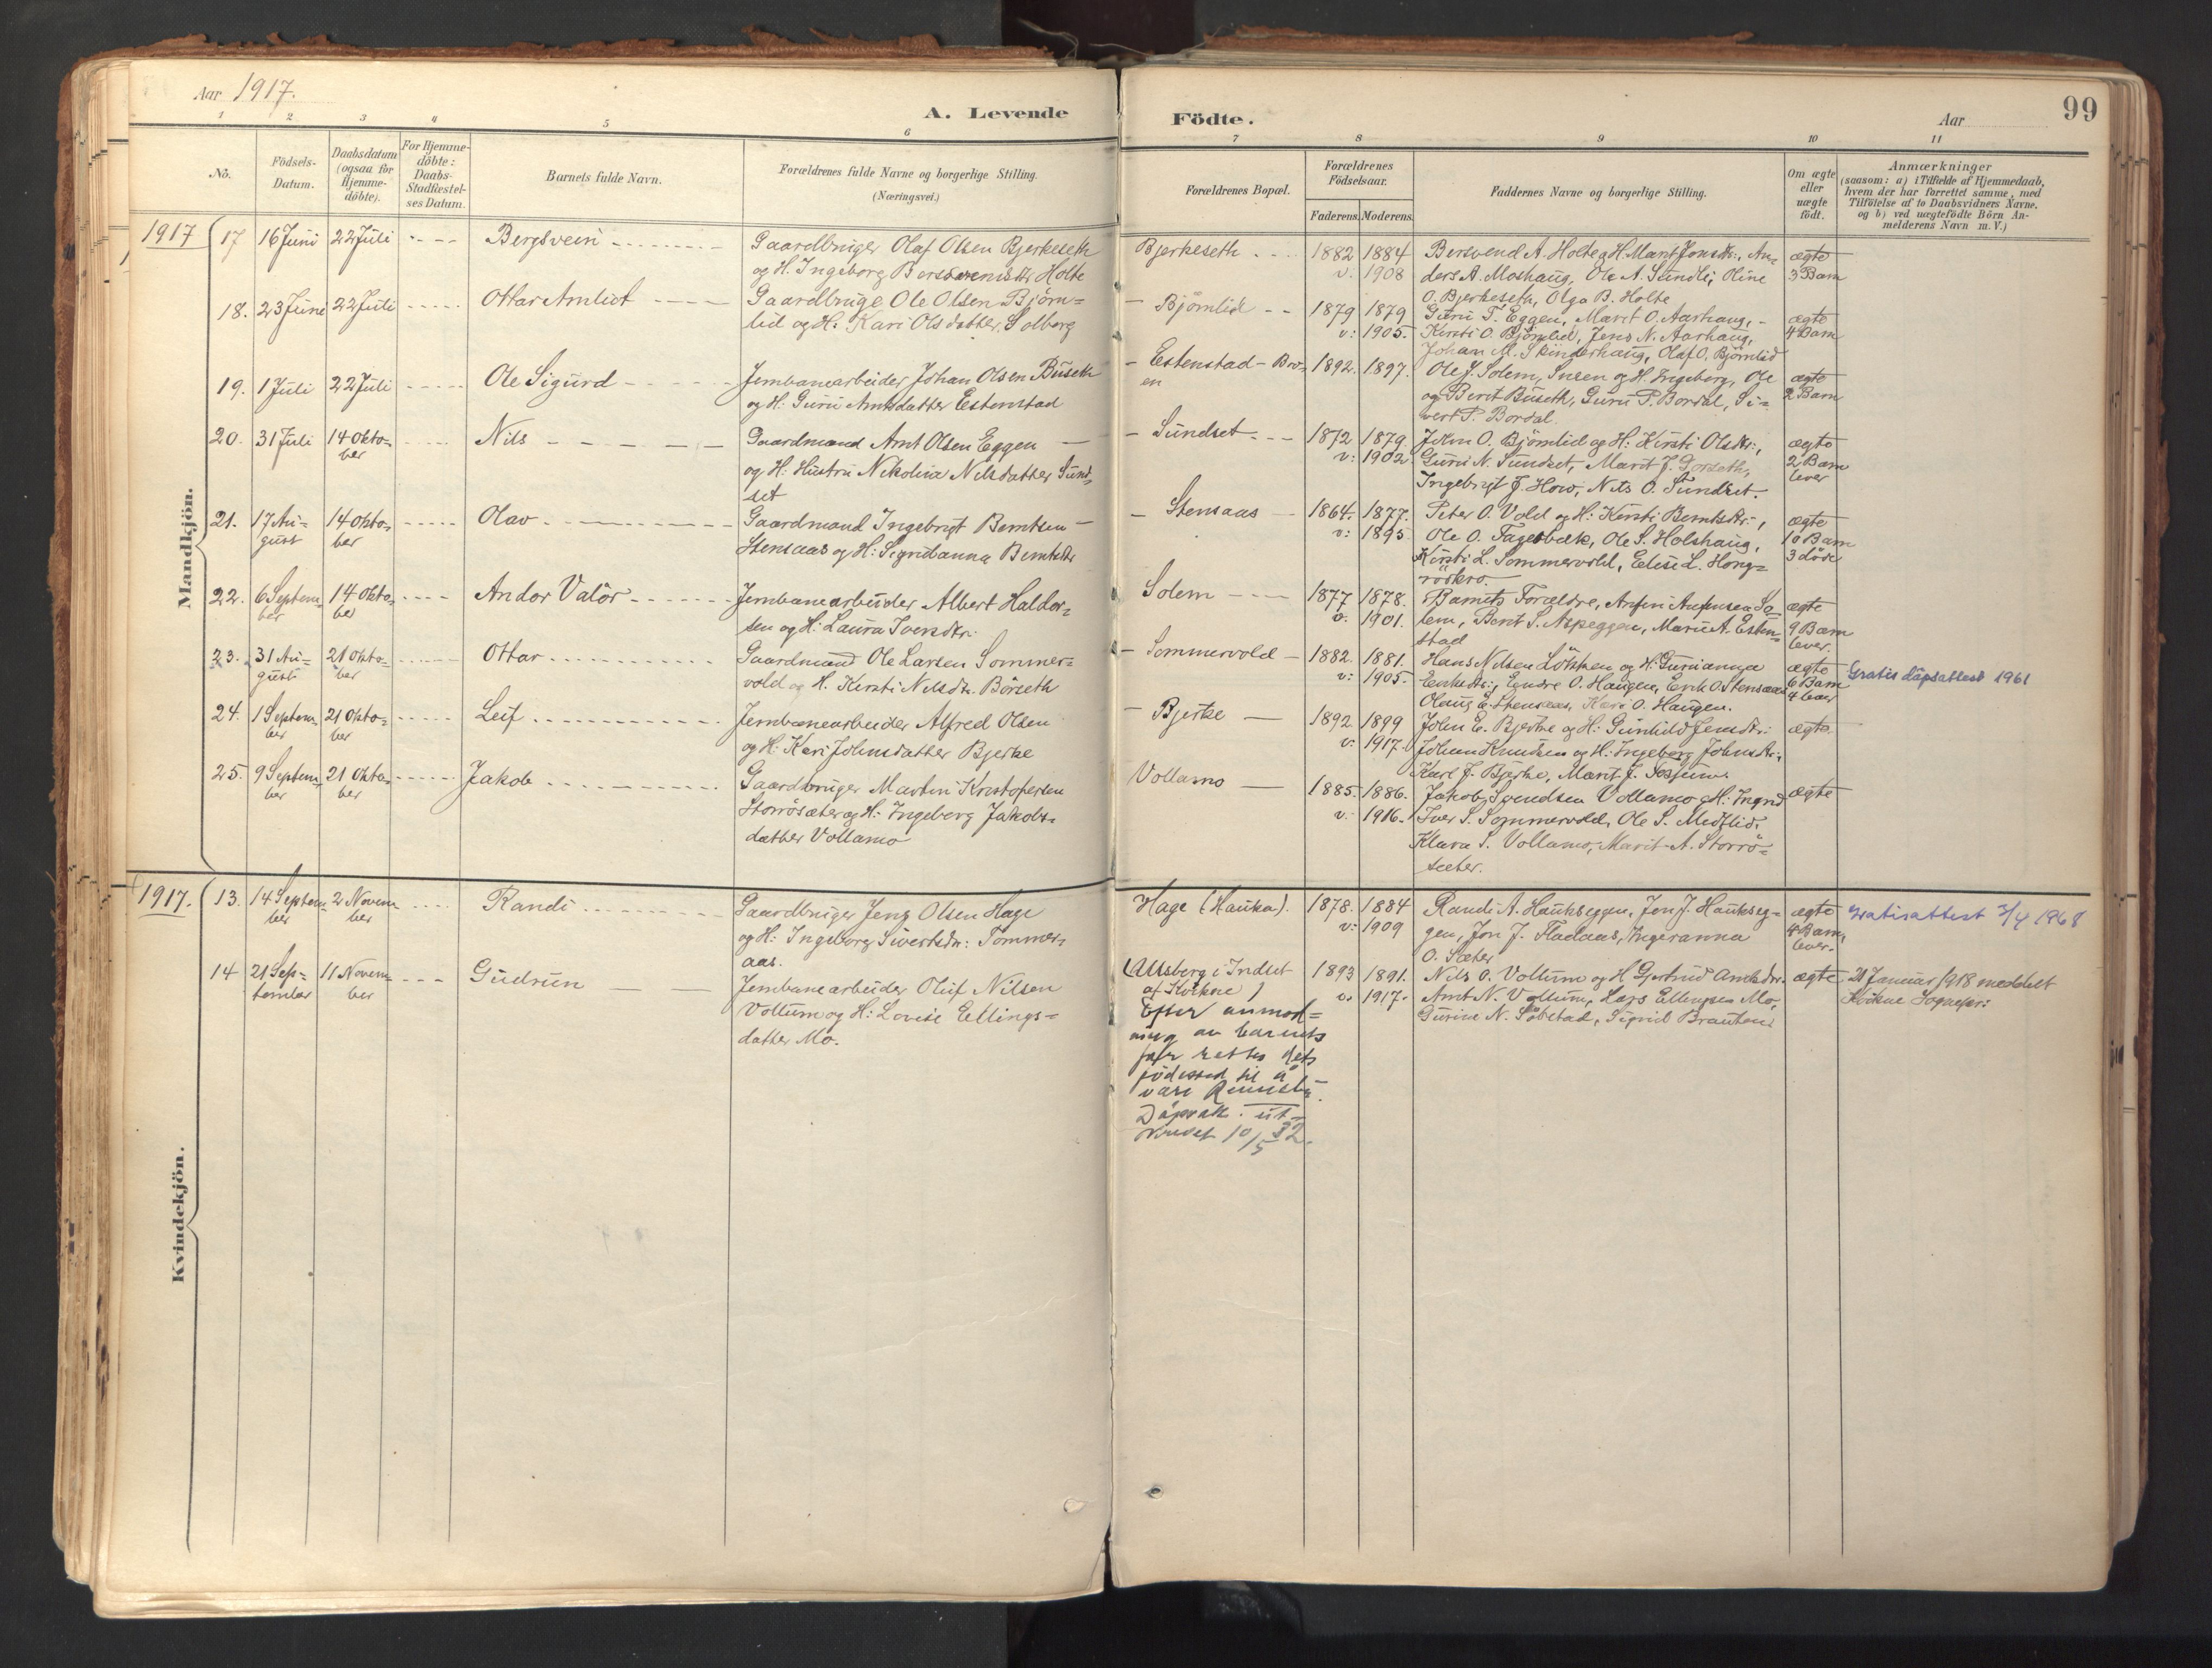 Aar 1917.
A. Levende Födte.
Aar
99
1 2 3 4 5 6 7 8 9 10 11
No.
Födsels-Datum.
Daabsdatum (ogsaa for Hjemme-döbte).
For Hjemme-döbte: Daabs-Stadfæstel-ses Datum.
Barnets fulde Navn.
Forældrenes fulde Navne og borgerlige Stilling. (Næringsvei.)
Forældrenes Bopæl.
Forældrenes Födselsaar.
Faderens. Moderens.
Faddernes Navne og borgerlige Stilling.
Om ægte eller uægte födt.
Anmærkninger
(saasom: a) i Tilfælde af Hjemmedaab,
hvem der har forrettet samme, med
Tilföielse af to Daabsvidners Navne,
og b) ved uægtefödte Börn An-
melderens Navn m. V.)
Mandkjön.
1917
17 16 Juni 22 Juli Bergsvein
Gaardbruger Olaf Olsen Bjerkeseth
og H. Ingeborg Holte
Bjerkeseth 1882 1884
v. 1908
Bersvend A. Holte og H. Marit Jonsdtr., An-
ders A. Moshaug, Ole A. Sundli, Oline
O. Bjerkeseth, Olga B. Holte
ægte
3 Barn
18. 23 Juni 22 Juli Ottar Amliot
Gaardbruge Ole Olsen Björn-
lid og H: Kari Olsdatter Solberg
Björnlid 1879 1879
v: 1905.
Guru T. Eggen, Marit O. Aarhaug,
Kirsti O. Björnlid, Jens N. Aarhaug,
Johan M. Skinderhaug, Olaf O. Björnlid
ægte
4 Barn
19. 1 Juli 22 Juli Ole Sigurd
Jernbanearbeider Johan Olsen Buseth
og H: Guru Arntsdatter Estenstad
Estenstad - Bro-
en
1892. 1897.
Ole J. Solem, og H. Ingeborg, Ole
og Berit Buseth, Guru P. Bordal, Si-
vert P. Bordal
ægte
2 Barn
20. 31 Juli 14 Okto-
ber
Nils
Gaardmand Arnt Olsen Eggen
og H: Hustru Nikolina Nilsdatter Sund-
set
Sundset 1872 1879
v: 1902
John O. Björnlid og H: Kirsti Olsdtr.,
Guru N. Sundset, Marit J. Dorseth,
Ingebrigt J. Hov, Nils O. Sundset.
ægte
2 Barn
lever
21. 17 Au-
gust
14 Okto-
ber
Olav
Gaardmand Ingebrigt Berntsen
Stensaas og H: Sigridanna Berntsdtr
Stensaas 1864. 1877.
v: 1895
Peter O. Vold og H: Kirsti Berntsdtr.,
Ole O. Fagerbæk, Ole S. Holshaug,
Kirsti L. Sommervold, Elise L. Hong-
röskro.
ægte
10 Barn
3 döde
22. 6 Septem-
ber
14 Okto-
ber
Andor Valör
Jernbanearbeider Albert Haldor-
sen og H: Laura Iversdtr.
Solem 1877 1878.
v. 1901.
Barnets Forældre, Anfin Anfinsen So-
lem, Berit S. Aspeggen, Marit A. Esten-
stad
ægte
9 Barn
lever.
23. 31 Au-
gust
21 Okto-
ber
Ottar
Gaardmand Ole Larsen Sommer-
vold og H. Kirsti Nilsdtr. Börseth
Sommervold 1882. 1881.
v: 1905.
Hans Nilsen Lökken og H: Gurianna
Eriksdtr., Endre O. Haugen, Erik O. Stensaas
Olaug E. Stensaas, Kari O. Haugen.
ægte
6 Barn
4 lever
Gratis dåpsattest 1961
24. 1 Septem-
ber
21 Okto-
ber
Leif
Jernbanearbeider Alfred Olsen
og H: Kari Johnsdatter Bjerke
Bjerke 1892 1899
v: 1917.
John E. Bjerke og H: Gunhild Jensdtr.
Johan Knudsen og H: Ingeborg Johnsdtr.,
Karl J. Bjerke, Marit J. Fossum.
ægte
25. 9 Septem-
ber
21 Okto-
ber
Jakob
Gaardbruger Martin Kristofersen
Storrösæter og H: Ingeborg Jakobs-
datter Vollamo
Vollamo 1885. 1886.
v. 1916.
Jakob Svendsen Vollamo og H: Ingrid
Iver S. Sommervold, Ole S. Medlid,
Klara S. Vollamo, Marit A. Storrö-
sæter.
ægte
Kvindekjön.
1917.
13. 14 Septem-
ber
2 Novem-
ber
Randi
Gaardbruger Jens Olsen Hage
og H: Ingeborg Sivertsdtr: Tömmer-
aas.
Hage (Hauka). 1878. 1884
v: 1909
Randi A. Haukseggen, Jon J. Haukseg-
gen, Jon J. Fladaas, Ingeranna
O. Sæter
ægte
4 Barn,
lever.
Gratisattest 3/4 1968
14 21 Sep-
tember
11 Novem-
ber
Gudrun
Jernbanearbeider Oluf Nilsen
Vollum og H: Lovise Ellings-
datter Mo.
(Ulsberg i Indset
af Kvikne)
Efter anmod-
ning av barnets
far rettes dets
födested til å
være Rennebu.
Dåpsatt. ut-
skrevet 10/5 32.
1893 1891.
v. 1917.
Nils O. Vollum og H Gjertrud Arntsdtr.
Arnt N. Vollum, Lars Ellingsen Mo,
Gurine N. Söbstad, Sigrid Brauten.
ægte
21 Januar 1918 meddelt
Kvikne Sognepr: